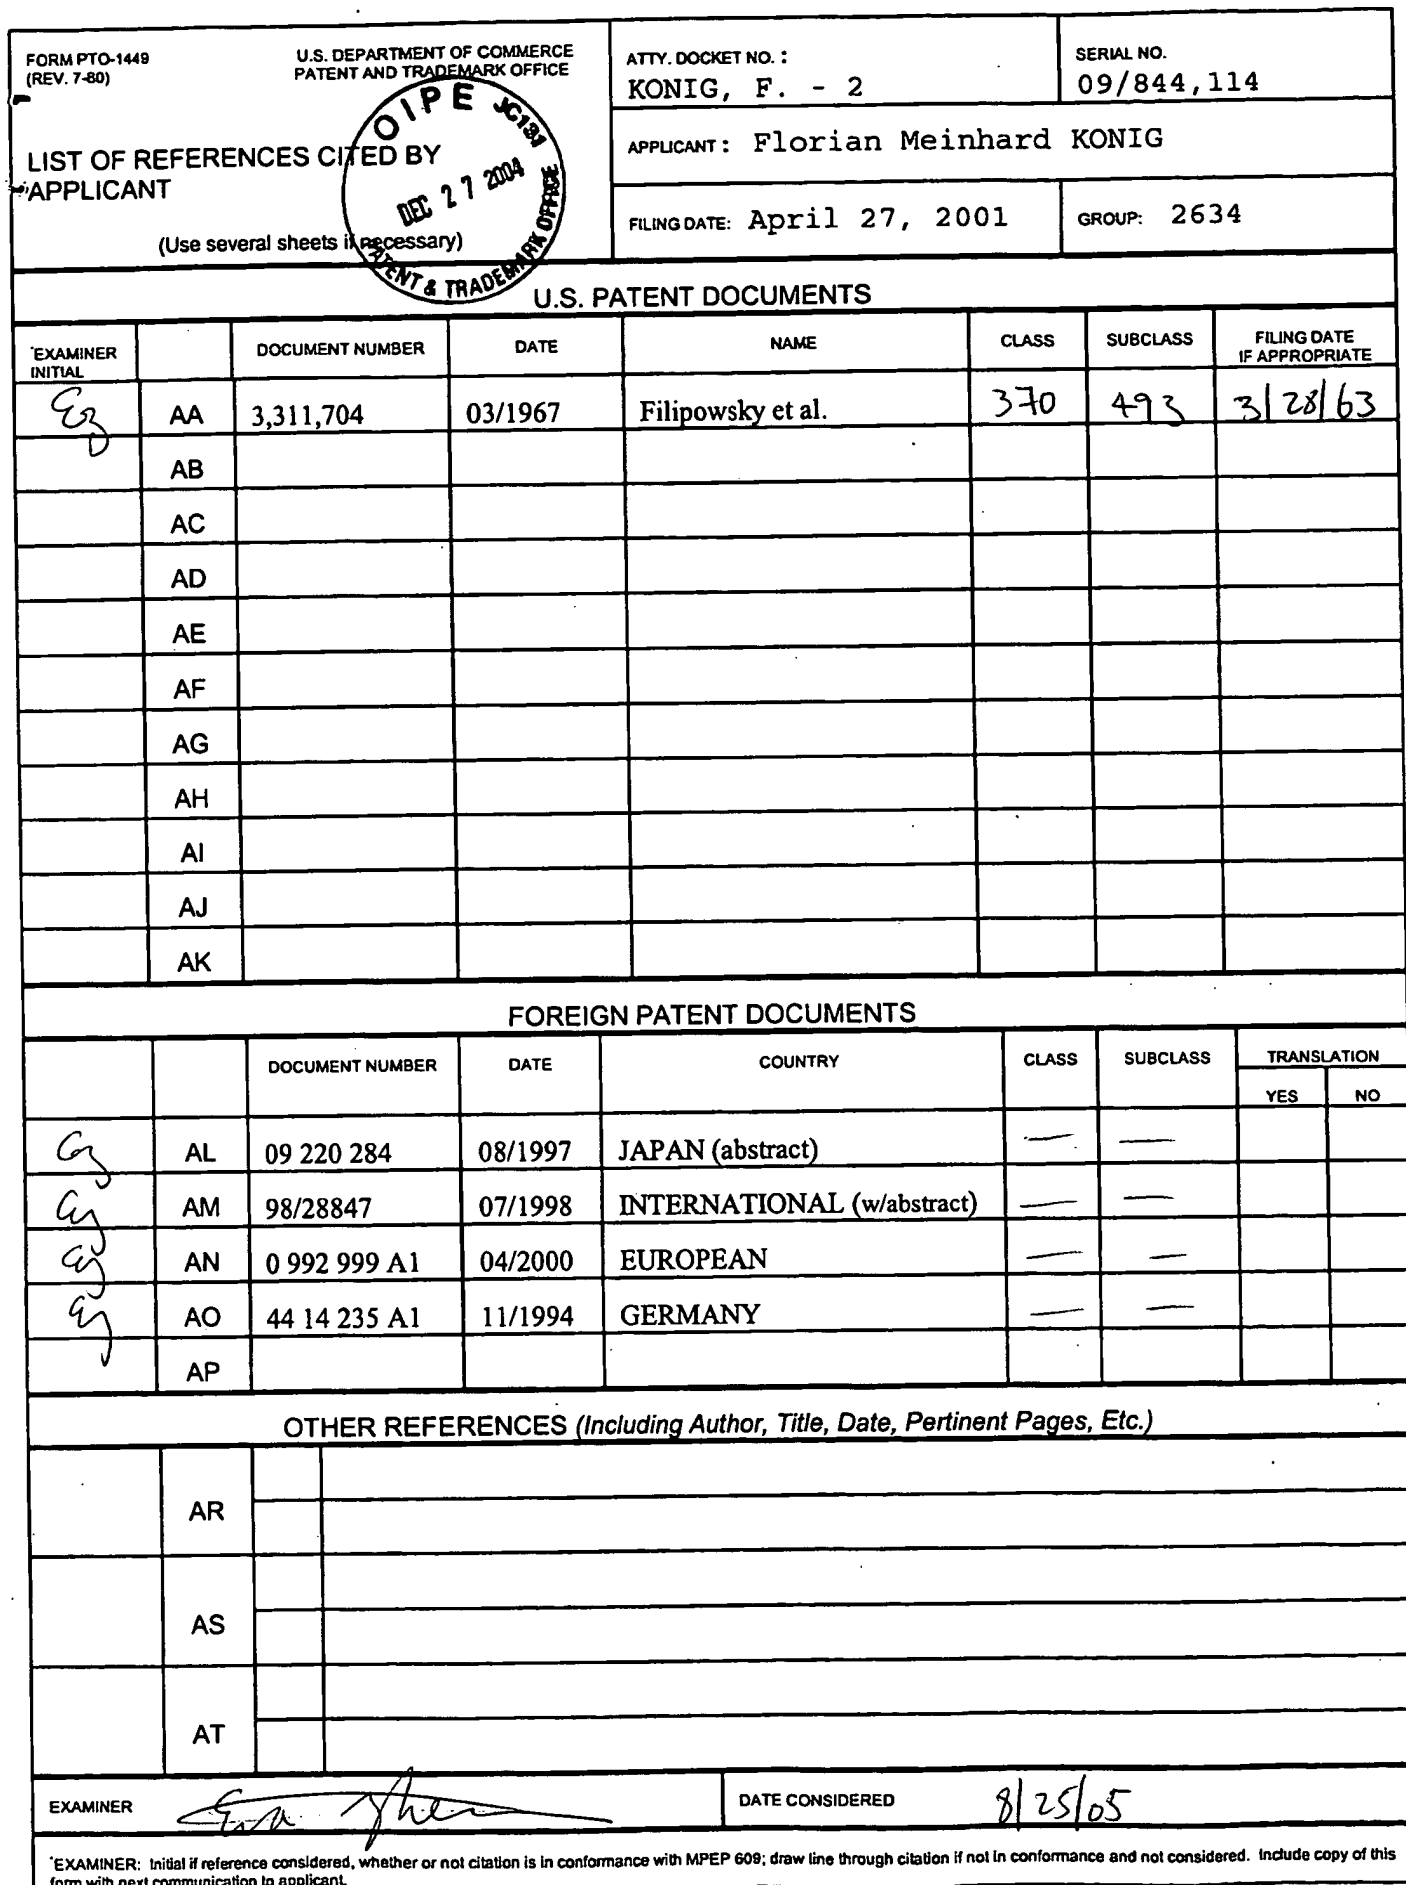 FORM PTO-1449
(REV. 7-80)
U.S. DEPARTMENT OF COMMERCE
PATENT AND TRADEMARK OFFICE
ATTY. DOCKET NO. :
KONIG, F. - 2
SERIAL NO.
09/844,114
OIPE JC131
DEC 27 2004
PATENT & TRADEMARK OFFICE
LIST OF REFERENCES CITED BY
APPLICANT
(Use several sheets if necessary)
APPLICANT : Florian Meinhard KONIG
FILING DATE: April 27, 2001
GROUP: 2634
U.S. PATENT DOCUMENTS
*EXAMINER
INITIAL
DOCUMENT NUMBER DATE NAME CLASS SUBCLASS FILING DATE
IF APPROPRIATE
AA 3,311,704 03/1967 Filipowsky et al. 370 493 3/28/63
AB
AC
AD
AE
AF
AG
AH
AI
AJ
AK
FOREIGN PATENT DOCUMENTS
DOCUMENT NUMBER DATE COUNTRY CLASS SUBCLASS TRANSLATION
YES NO
AL 09 220 284 08/1997 JAPAN (abstract) — —
AM 98/28847 07/1998 INTERNATIONAL (w/abstract) — —
AN 0 992 999 A1 04/2000 EUROPEAN — —
AO 44 14 235 A1 11/1994 GERMANY — —
AP
OTHER REFERENCES (Including Author, Title, Date, Pertinent Pages, Etc.)
AR
AS
AT
EXAMINER
DATE CONSIDERED 8/25/05
*EXAMINER: Initial if reference considered, whether or not citation is in conformance with MPEP 609; draw line through citation if not in conformance and not considered. Include copy of this
form with next communication to applicant.